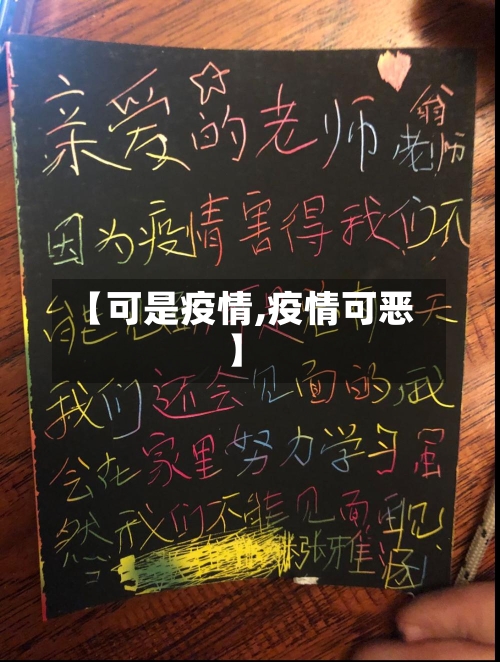 亲爱的老师
翁
老师
因为疫情害得我们不
【可是疫情,疫情可恶
】
能 天
我们还会见面的,我
会在家里努力学习
然我们不能见面
张雅涵